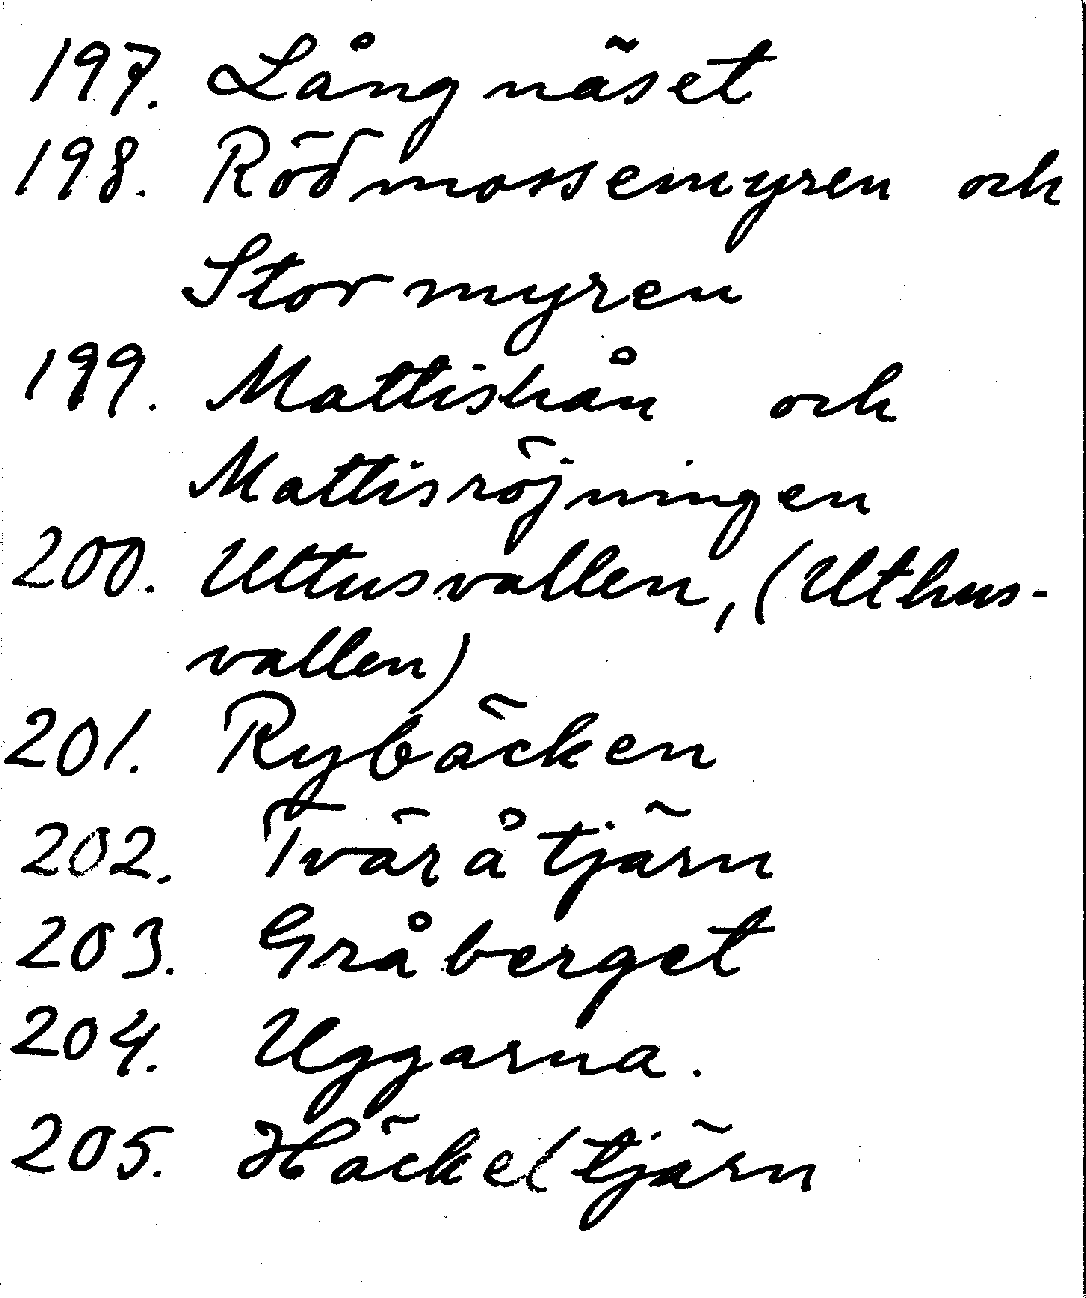 197. Långnäset
198. Rödmossemyren och
Stormyren
199. Mattishån och
Mattisröjningen
200. Uttusvallen, (Uthus-
vallen)
201. Rybäcken
202. Tväråtjärn
203. Gråberget
204. Uggarna.
205. Häckeltjärn